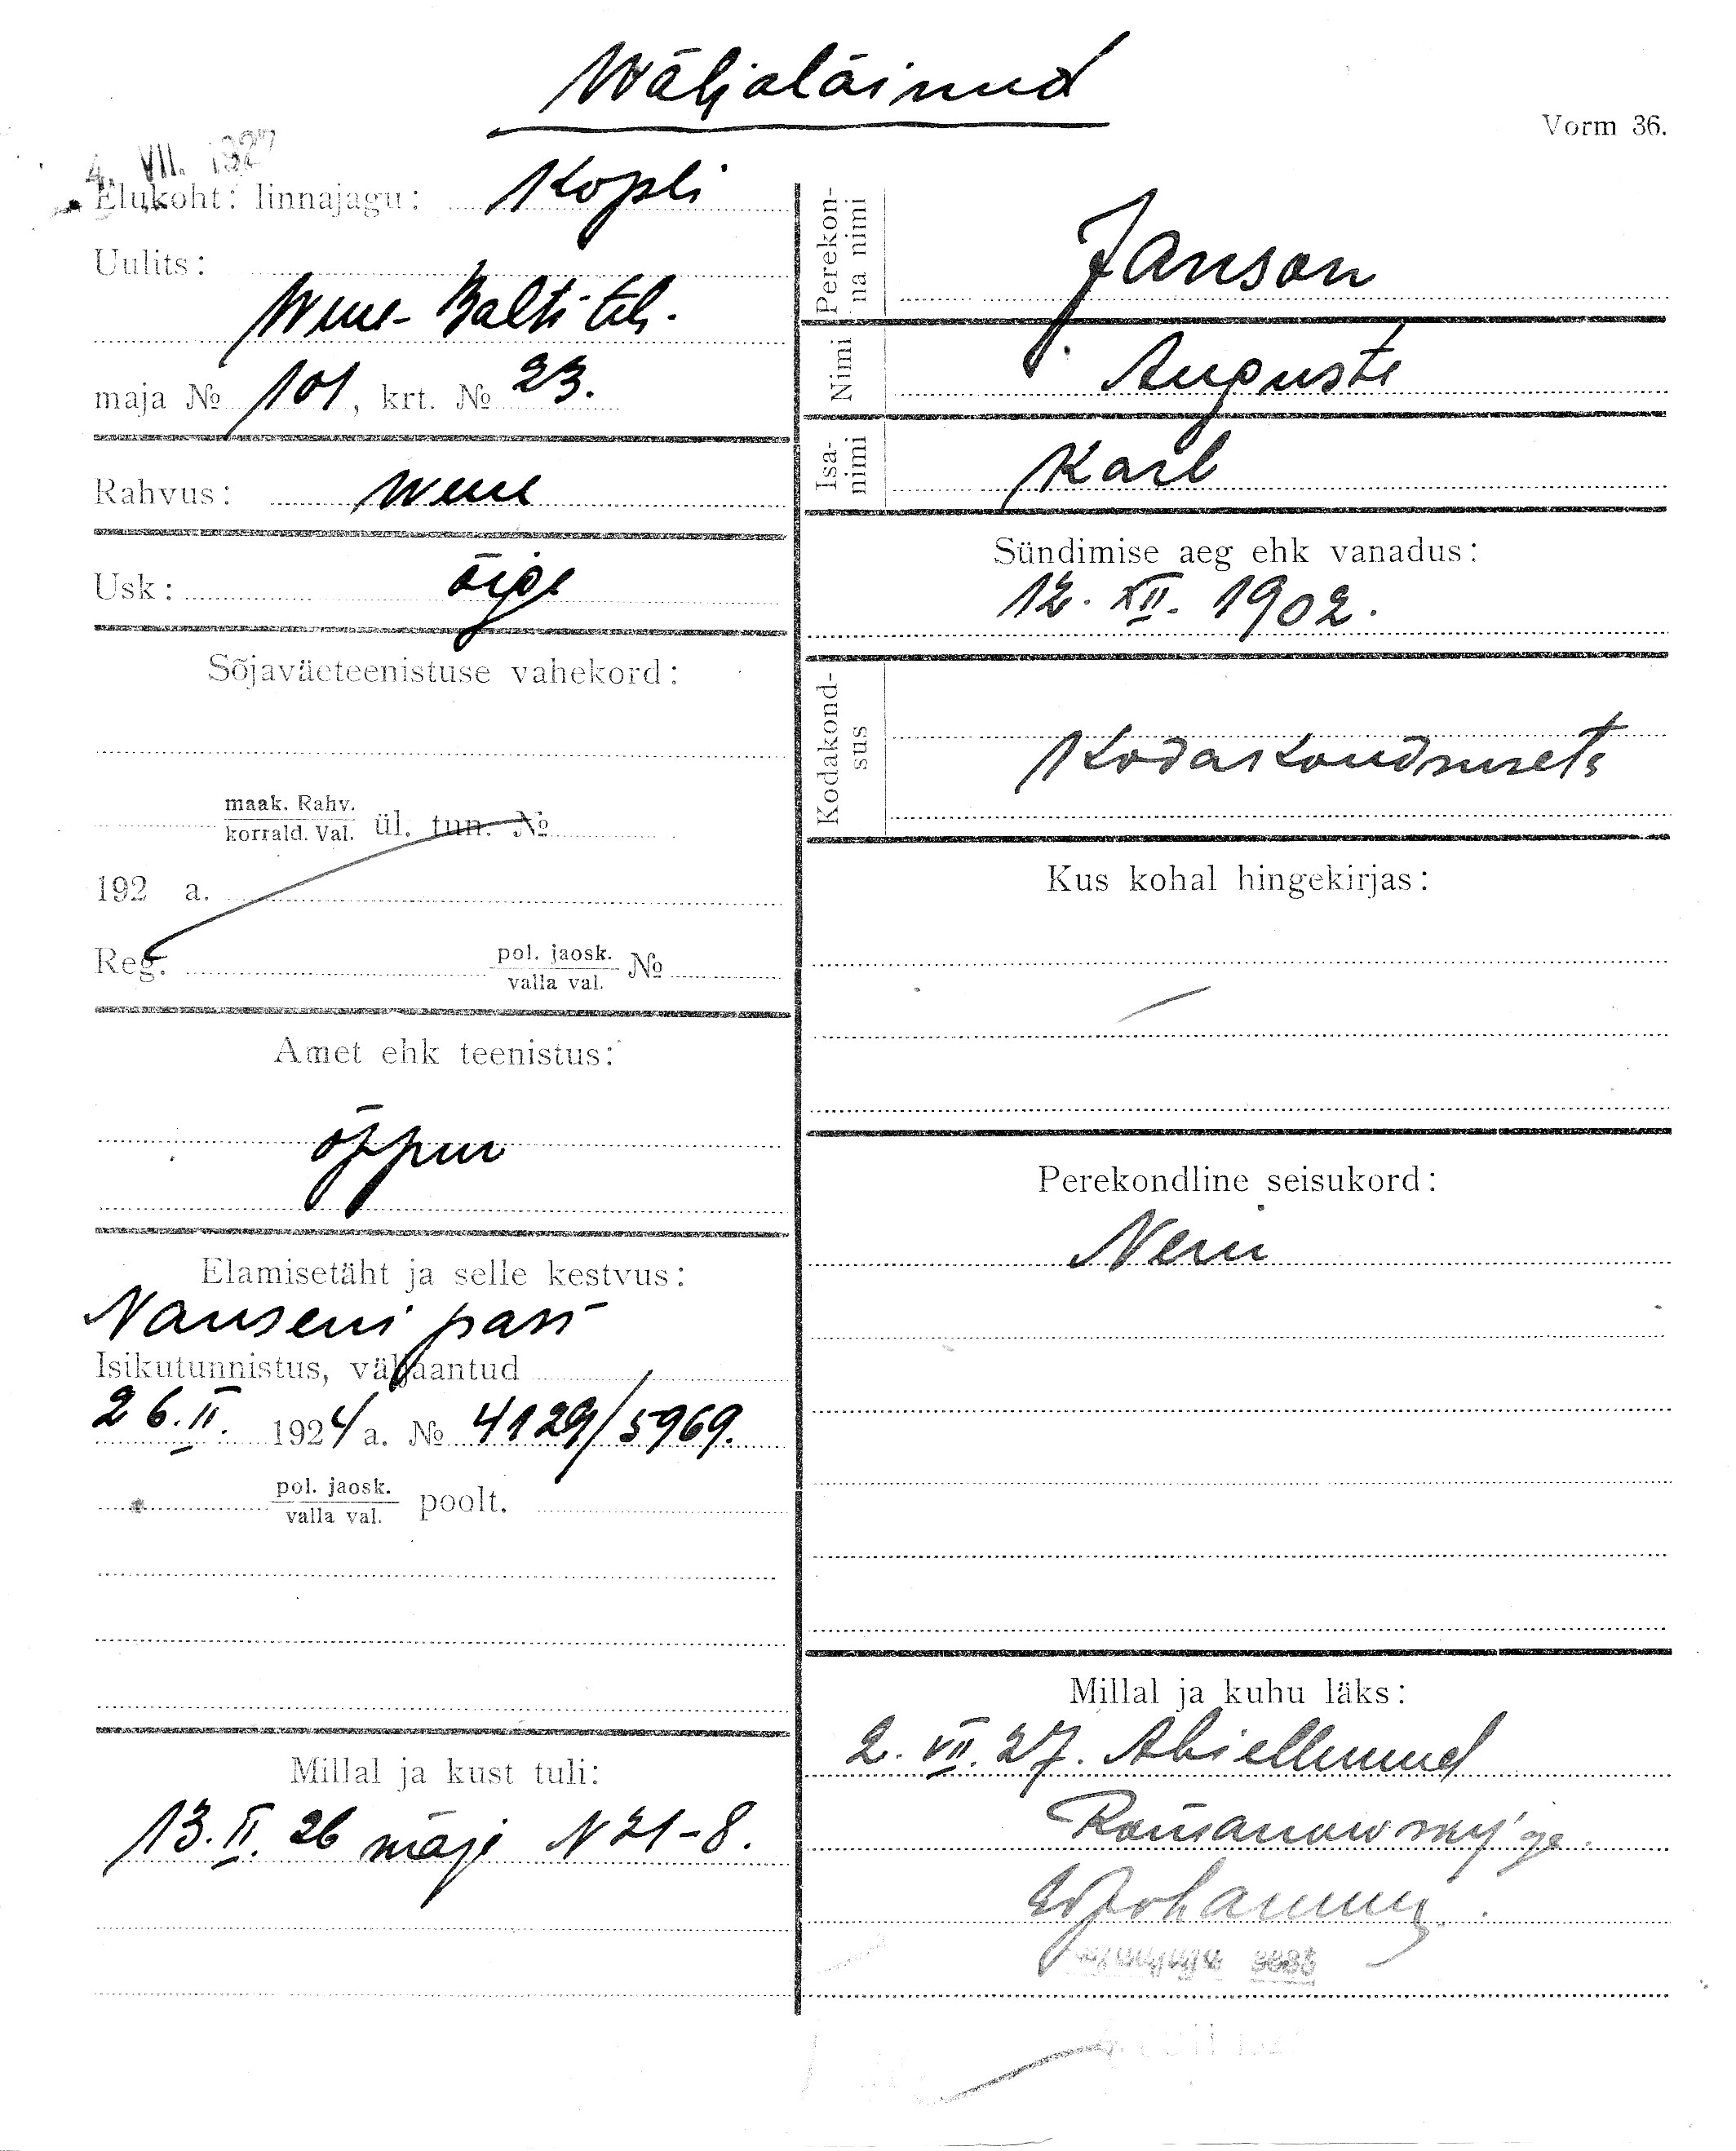 Wäljaläinud
Vorm 36.
4. VII. 1927
Elukoht: linnajagu: Kopli
Uulits:
Wene-Balti teh.
maja № 101, krt. № 23.
Rahvus: wene
Usk: õige
Sõjaväeteenistuse vahekord:
maak. Rahv.
korrald. Val. ül. tun. №
192 a.
Reg. pol. jaosk.
valla val. №
Amet ehk teenistus:
õppur
Elamisetäht ja selle kestvus:
Nanseni pass
Isikutunnistus, väljaantud
26. II. 1924 a. № 4129/5969.
pol. jaosk.
valla val. poolt.
Millal ja kust tuli:
13. II. 26 maja N 21-8.
Perekonna nimi
Janson
Nimi
Auguste
Isanimi
Karl
Sündimise aeg ehk vanadus:
12. XII. 1902.
Kodakondsus
Kodakondsuseta
Kus kohal hingekirjas:
Perekondline seisukord:
Neiu
Millal ja kuhu läks:
2. VII. 27. Abiellunud
Romanowsky'ga.